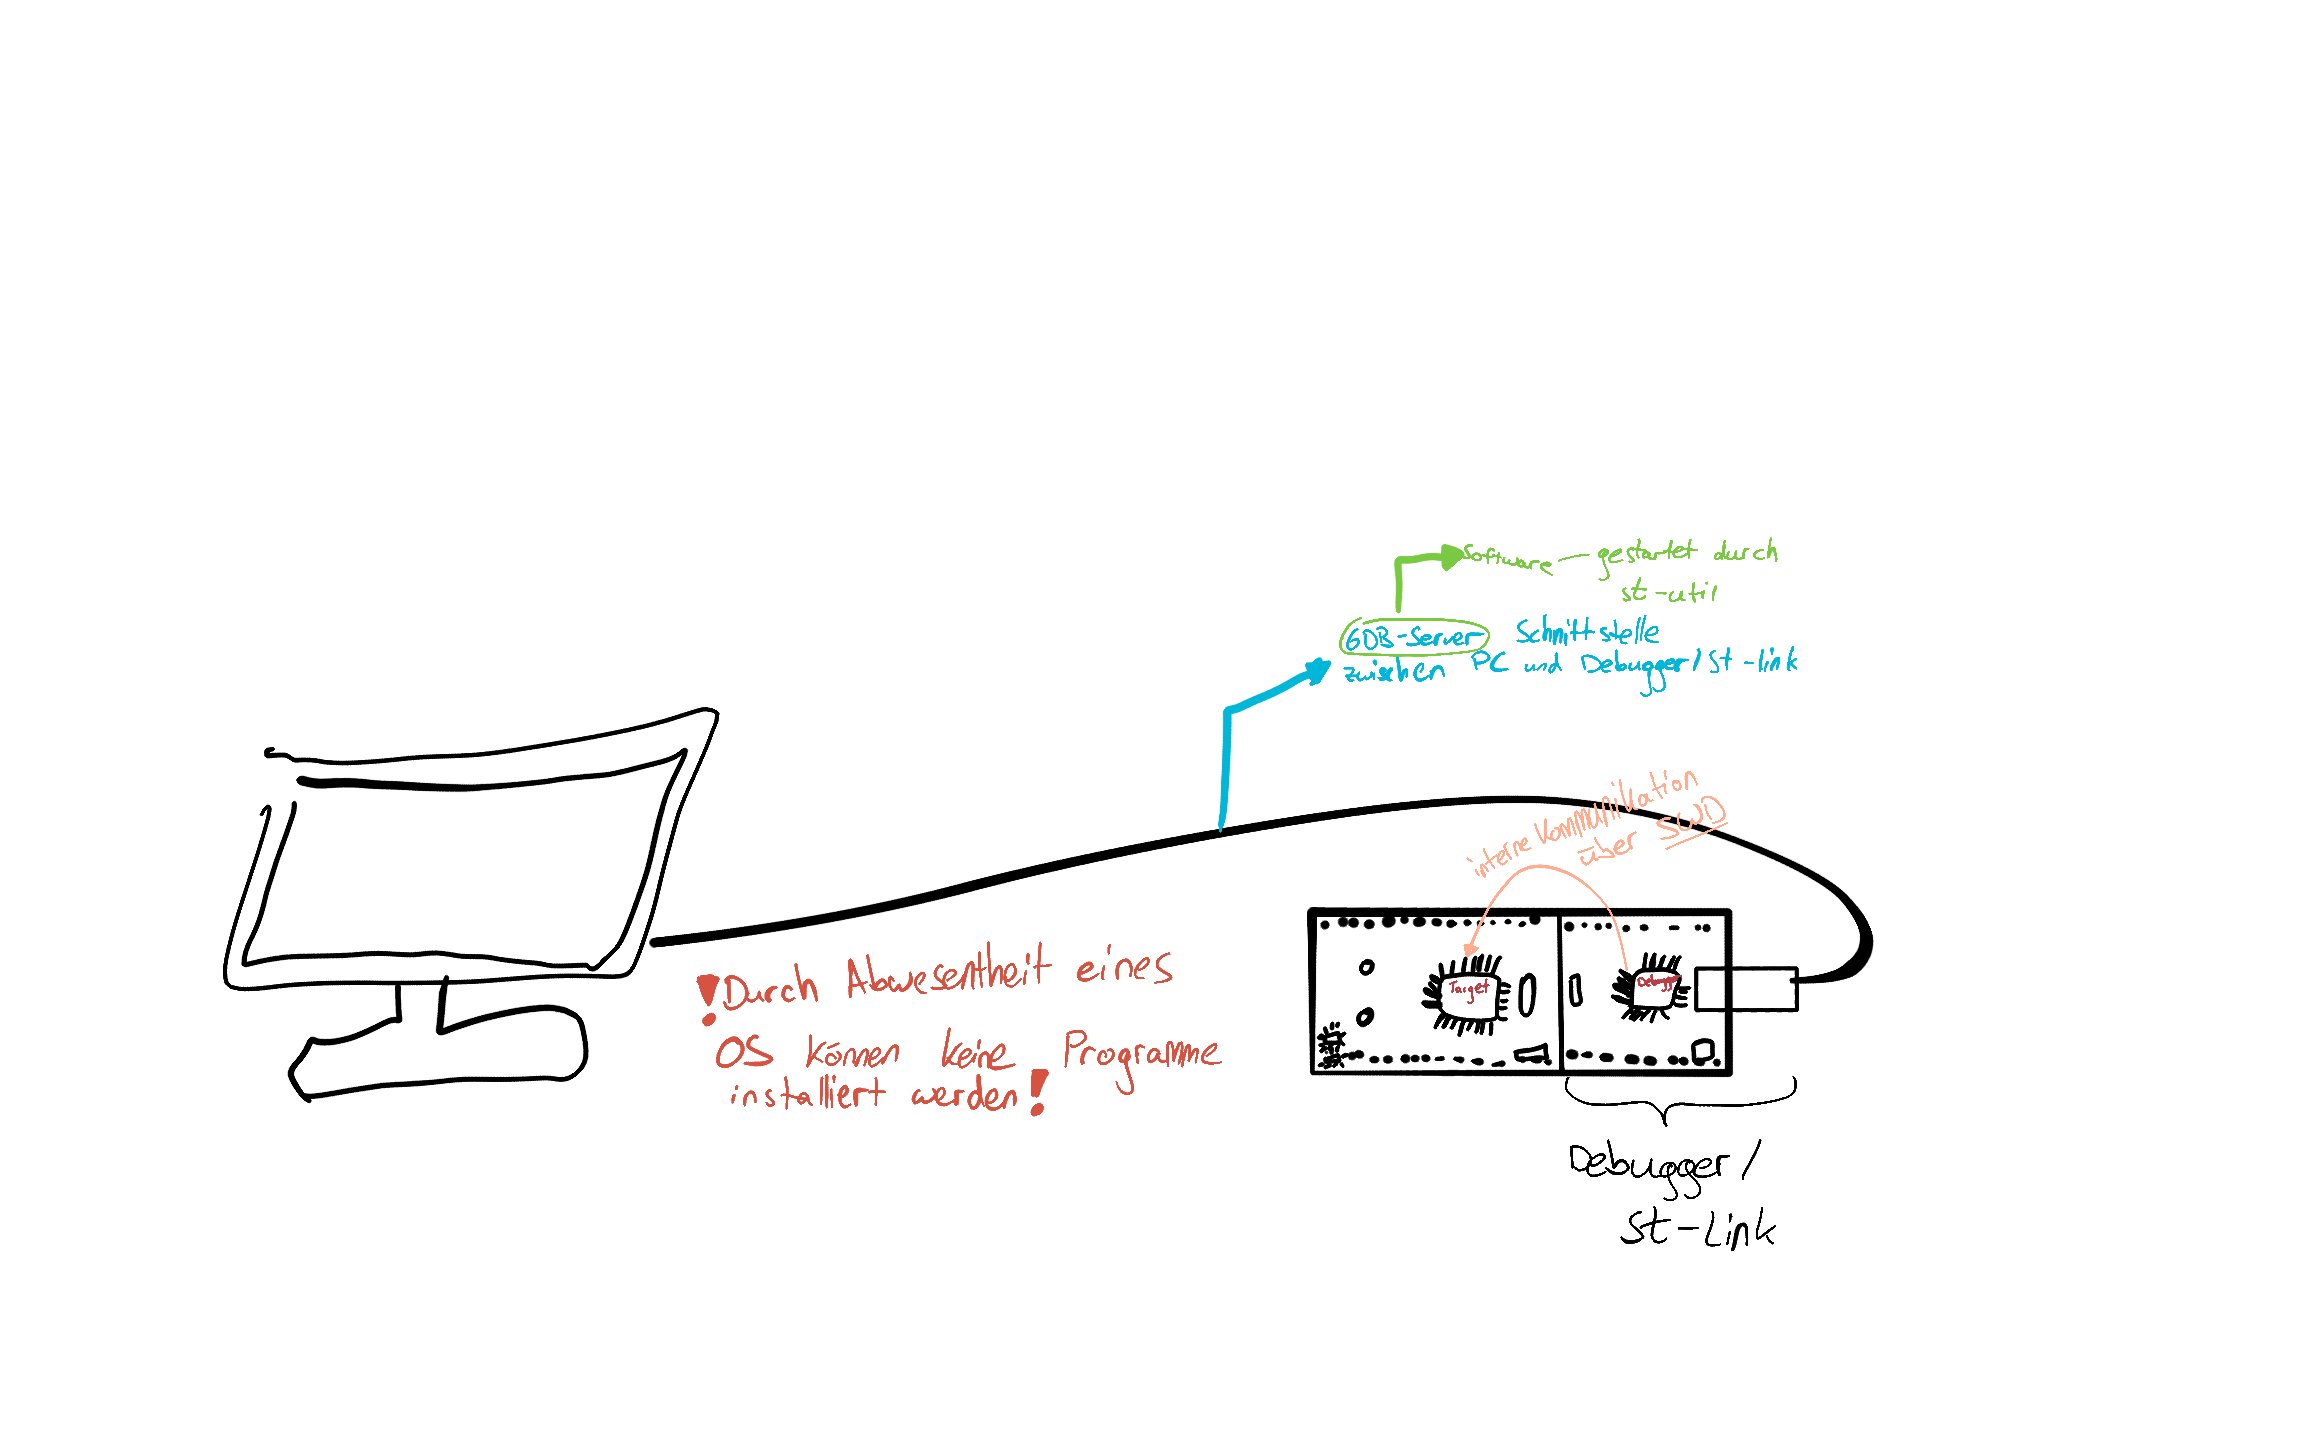 Software – gestartet durch
st-util
GDB-Server Schnittstelle
zwischen PC und Debugger/St-link
interne Kommunikation
über SWD
!Durch Abwesentheit eines
OS können keine Programme
installiert werden!
Target
Debugger
Debugger/
St-Link